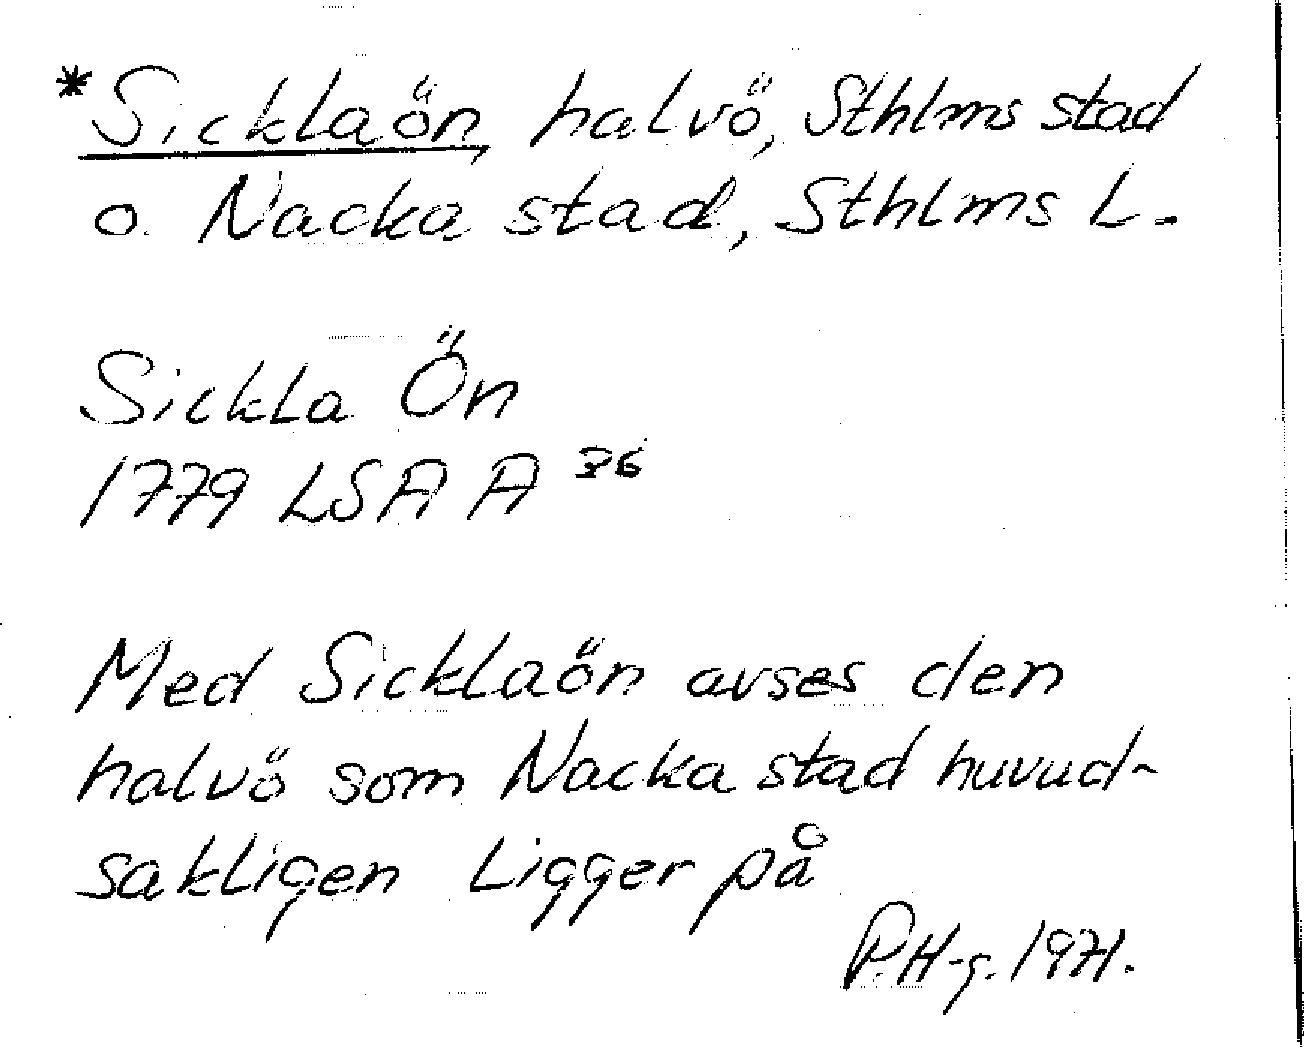 *Sicklaön, halvö, Sthlms stad
o. Nacka stad, Sthlms L.
Sickla Ön
1779 LSA A 36
Med Sicklaön avses den
halvö som Nacka stad huvud-
sakligen Ligger på
P.H-g. 1971.